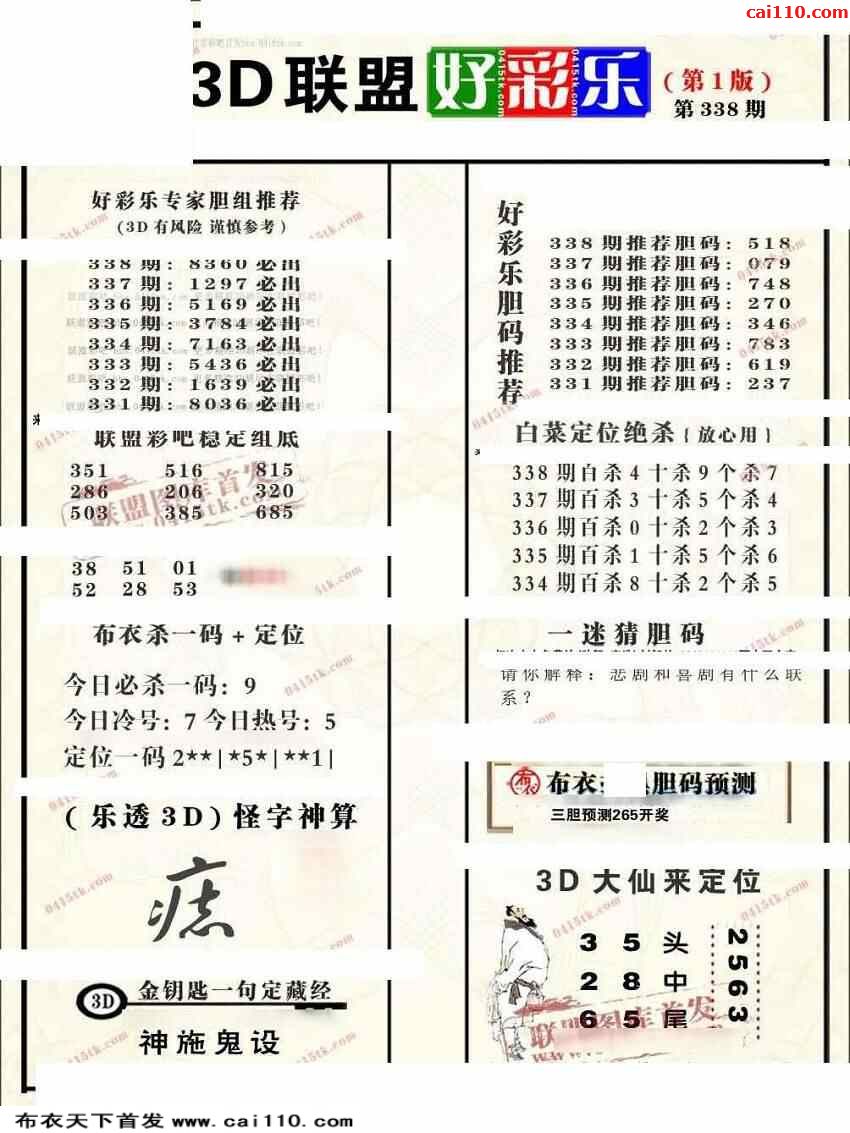 cai110.com
3D联盟好彩乐
(第1版)
第338期
好彩乐专家胆组推荐
(3D有风险 谨慎参考)
338期: 8360必出
337期: 1297必出
336期: 5169必出
335期: 3784必出
334期: 7163必出
333期: 5436必出
332期: 1639必出
331期: 8036必出
联盟彩吧稳定组底
351 516 815
286 206 320
503 385 685
38 51 01
52 28 53
布衣杀一码+定位
今日必杀一码: 9
今日冷号: 7 今日热号: 5
定位一码 2**|*5*|**1|
(乐透3D)怪字神算
痣
3D 金钥匙一句定藏经
神施鬼设
好彩乐胆码推荐
338期推荐胆码: 518
337期推荐胆码: 079
336期推荐胆码: 748
335期推荐胆码: 270
334期推荐胆码: 346
333期推荐胆码: 783
332期推荐胆码: 619
331期推荐胆码: 237
白菜定位绝杀{放心用}
338期百杀4十杀9个杀7
337期百杀3十杀5个杀4
336期百杀0十杀2个杀3
335期百杀1十杀5个杀6
334期百杀8十杀2个杀5
一迷猜胆码
请你解释: 悲剧和喜剧有什么联
系?
布衣
胆码预测
三胆预测265开奖
3D大仙来定位
3 5 头
2 8 中
6 5 尾
2563
联盟图库首发
0415tk.com
布衣天下首发 www.cai110.com